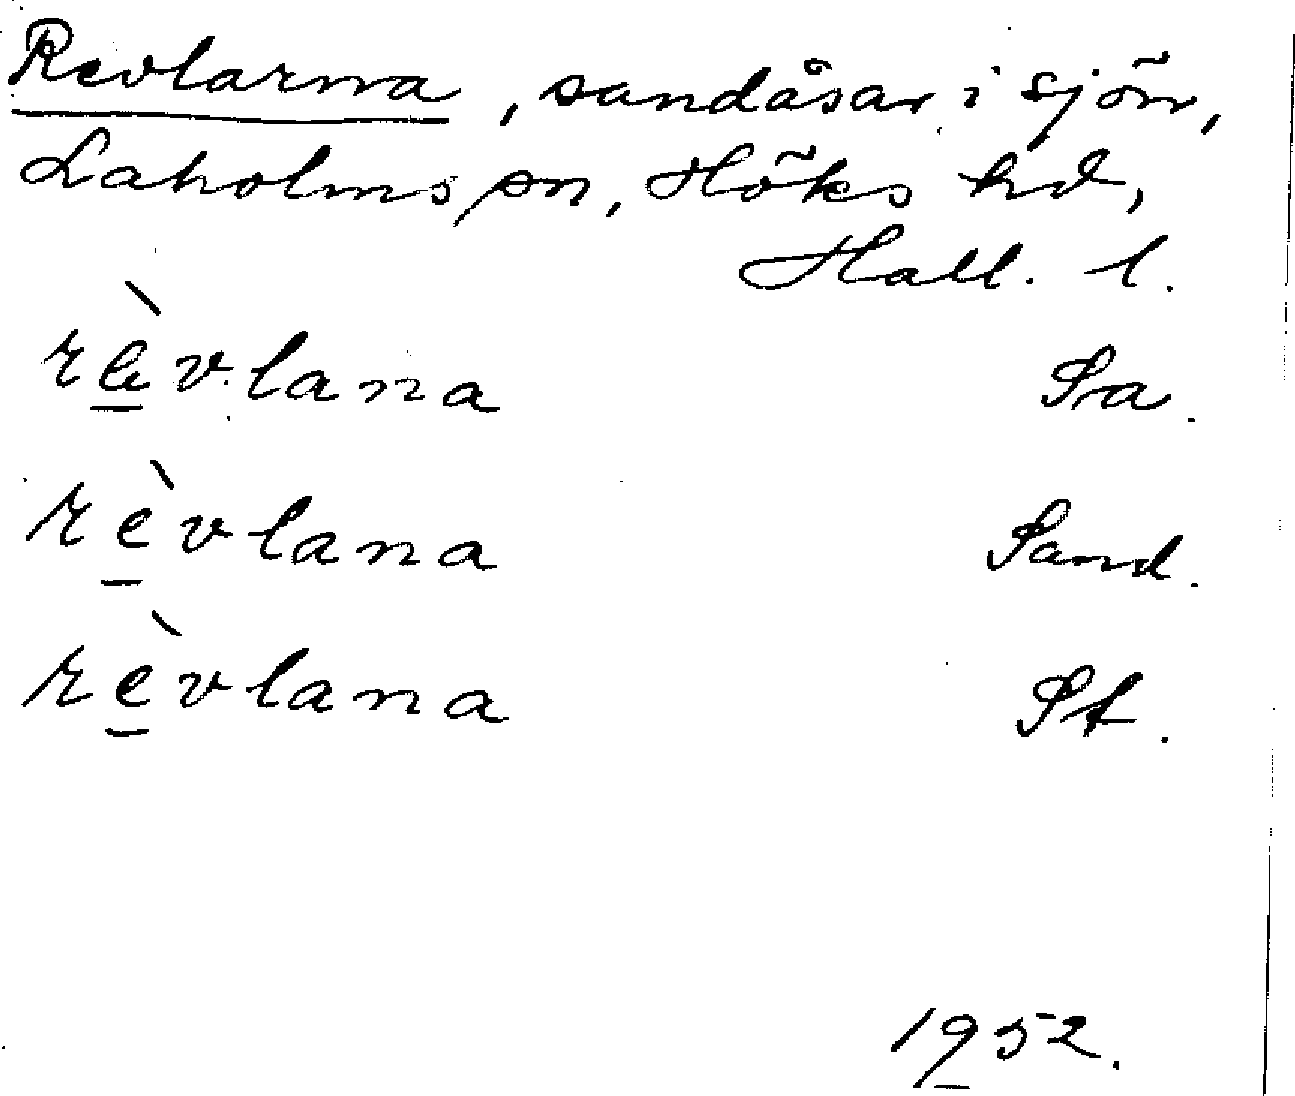 Revlarna, sandåsar i sjön,
Laholms sn, Höks hd,
Hall. l.
rè̱vlana Sa.
rè̱vlana Sand.
rè̱vlana St.
1952.